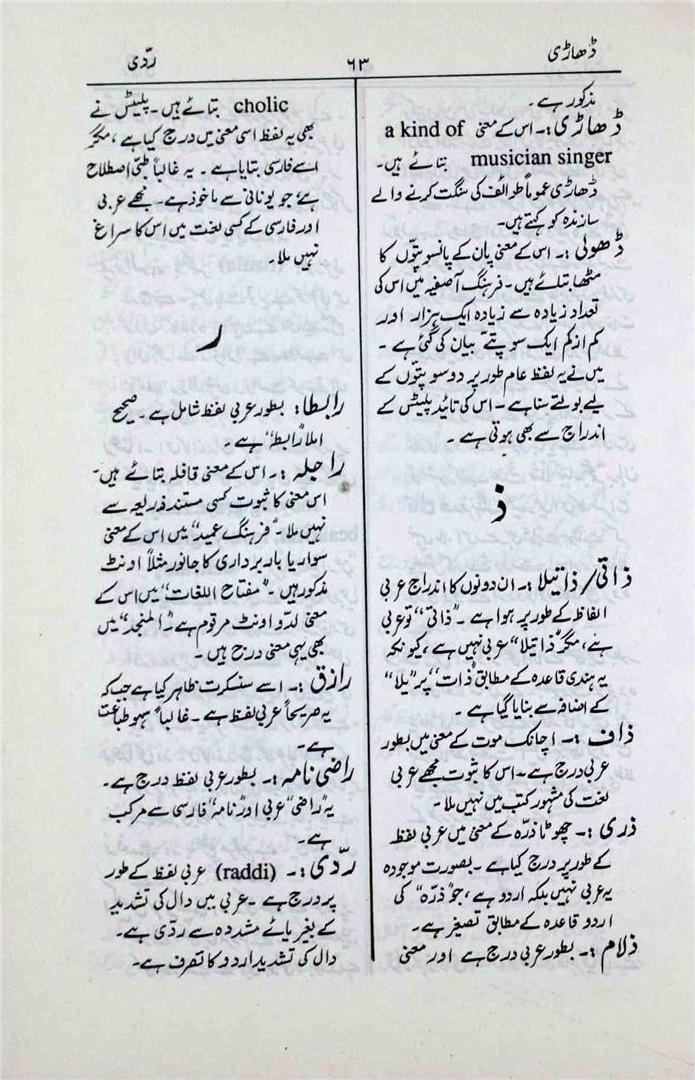 ڈھاڑی
۶۳
ردّی
مذکور ہے۔
ڈھاڑی:۔ اس کے معنی a kind of
musician singer بتائے ہیں۔
ڈھاڑی عموماً طوائف کی سنگت کرنے والے
سازندہ کو کہتے ہیں۔
ڈھولی:۔ اس کے معنی پان کے پانسو پتّوں کا
مٹھا بتلائے ہیں۔ فرہنگ آصفیہ میں اس کی
تعداد زیادہ سے زیادہ ایک ہزار اور
کم از کم ایک سو پتے بیان کی گئی ہے۔
میں نے یہ لفظ عام طور پر دو سو پتّوں کے
لیے بولتے سنا ہے۔ اس کی تائید پلیٹس کے
اندراج سے بھی ہوتی ہے۔
ذ
ذاتی/ذاتیلا:۔ ان دونوں کا اندراج عربی
الفاظ کے طور پر ہوا ہے۔ "ذاتی" تو عربی
ہے، مگر "ذاتیلا" عربی نہیں ہے، کیونکہ
یہ ہندی قاعدہ کے مطابق "ذات" پر "یلا"
کے اضافہ سے بنایا گیا ہے۔
ذاف:۔ اچانک موت کے معنی میں بطور
عربی درج ہے۔ اس کا ثبوت مجھے عربی
لغت کی مشہور کتب میں نہیں ملا۔
ذری:۔ چھوٹا ذرّہ کے معنی میں عربی لفظ
کے طور پر درج کیا ہے۔ بصورت موجودہ
یہ عربی نہیں بلکہ اردو ہے، جو "ذرّہ" کی
اردو قاعدہ کے مطابق تصغیر ہے۔
ذلام:۔ بطور عربی درج ہے اور معنی
cholic بتائے ہیں۔ پلیٹس نے
بھی یہ لفظ اسی معنی میں درج کیا ہے، مگر
اسے فارسی بتایا ہے۔ یہ غالباً طبّی اصطلاح
ہے جو یونانی سے ماخوذ ہے۔ مجھے عربی
اور فارسی کے کسی لغت میں اس کا سراغ
نہیں ملا۔
ر
رابطا:۔ بطور عربی لفظ شامل ہے۔ صحیح
املا "رابط" ہے۔
راحلہ:۔ اس کے معنی قافلہ بتائے ہیں۔
اس معنی کا ثبوت کسی مستند ذریعہ سے
نہیں ملا۔ "فرہنگ عمید" میں اس کے معنی
سوار یا باربرداری کا جانور مثلاً اونٹ
مذکور ہیں۔ "مفتاح اللغات" میں اس کے
معنی لدّو اونٹ مرقوم ہے۔ "المنجد" میں
بھی یہی معنی درج ہیں۔
رازق:۔ اسے سنسکرت ظاہر کیا ہے جب کہ
یہ صریحاً عربی لفظ ہے۔ غالباً سہو طباعت
ہے۔
راضی نامہ:۔ بطور عربی لفظ درج ہے۔
یہ "راضی" عربی اور "نامہ" فارسی سے مرکب
ہے۔
ردّی:۔ (raddi) عربی لفظ کے طور
پر درج ہے۔ عربی میں دال کی تشدید
کے بغیر یائے مشددہ سے ردی ہے۔
دال کی تشدید اردو کا تصرف ہے۔